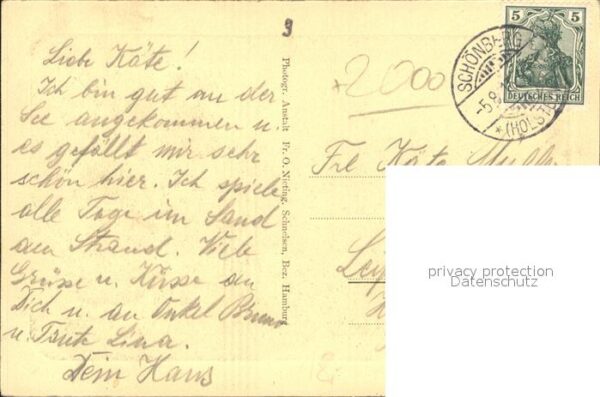 Liebe Käte!
Ich bin gut an der
See angekommen u.
es gefällt mir sehr
schön hier. Ich spiele
alle Tage im Sand
am Strand. Viele
Grüsse u. Küsse an
Dich u. an Onkel Bruno
u. Tante Lina.
Dein Hans
9
Photogr. Anstalt Fr. O. Nieting, Schnelsen, Bez. Hamburg
2000
SCHÖNBERG
(HOLST
5 5
DEUTSCHES REICH
Frl. Käte
Leip
privacy protection
Datenschutz